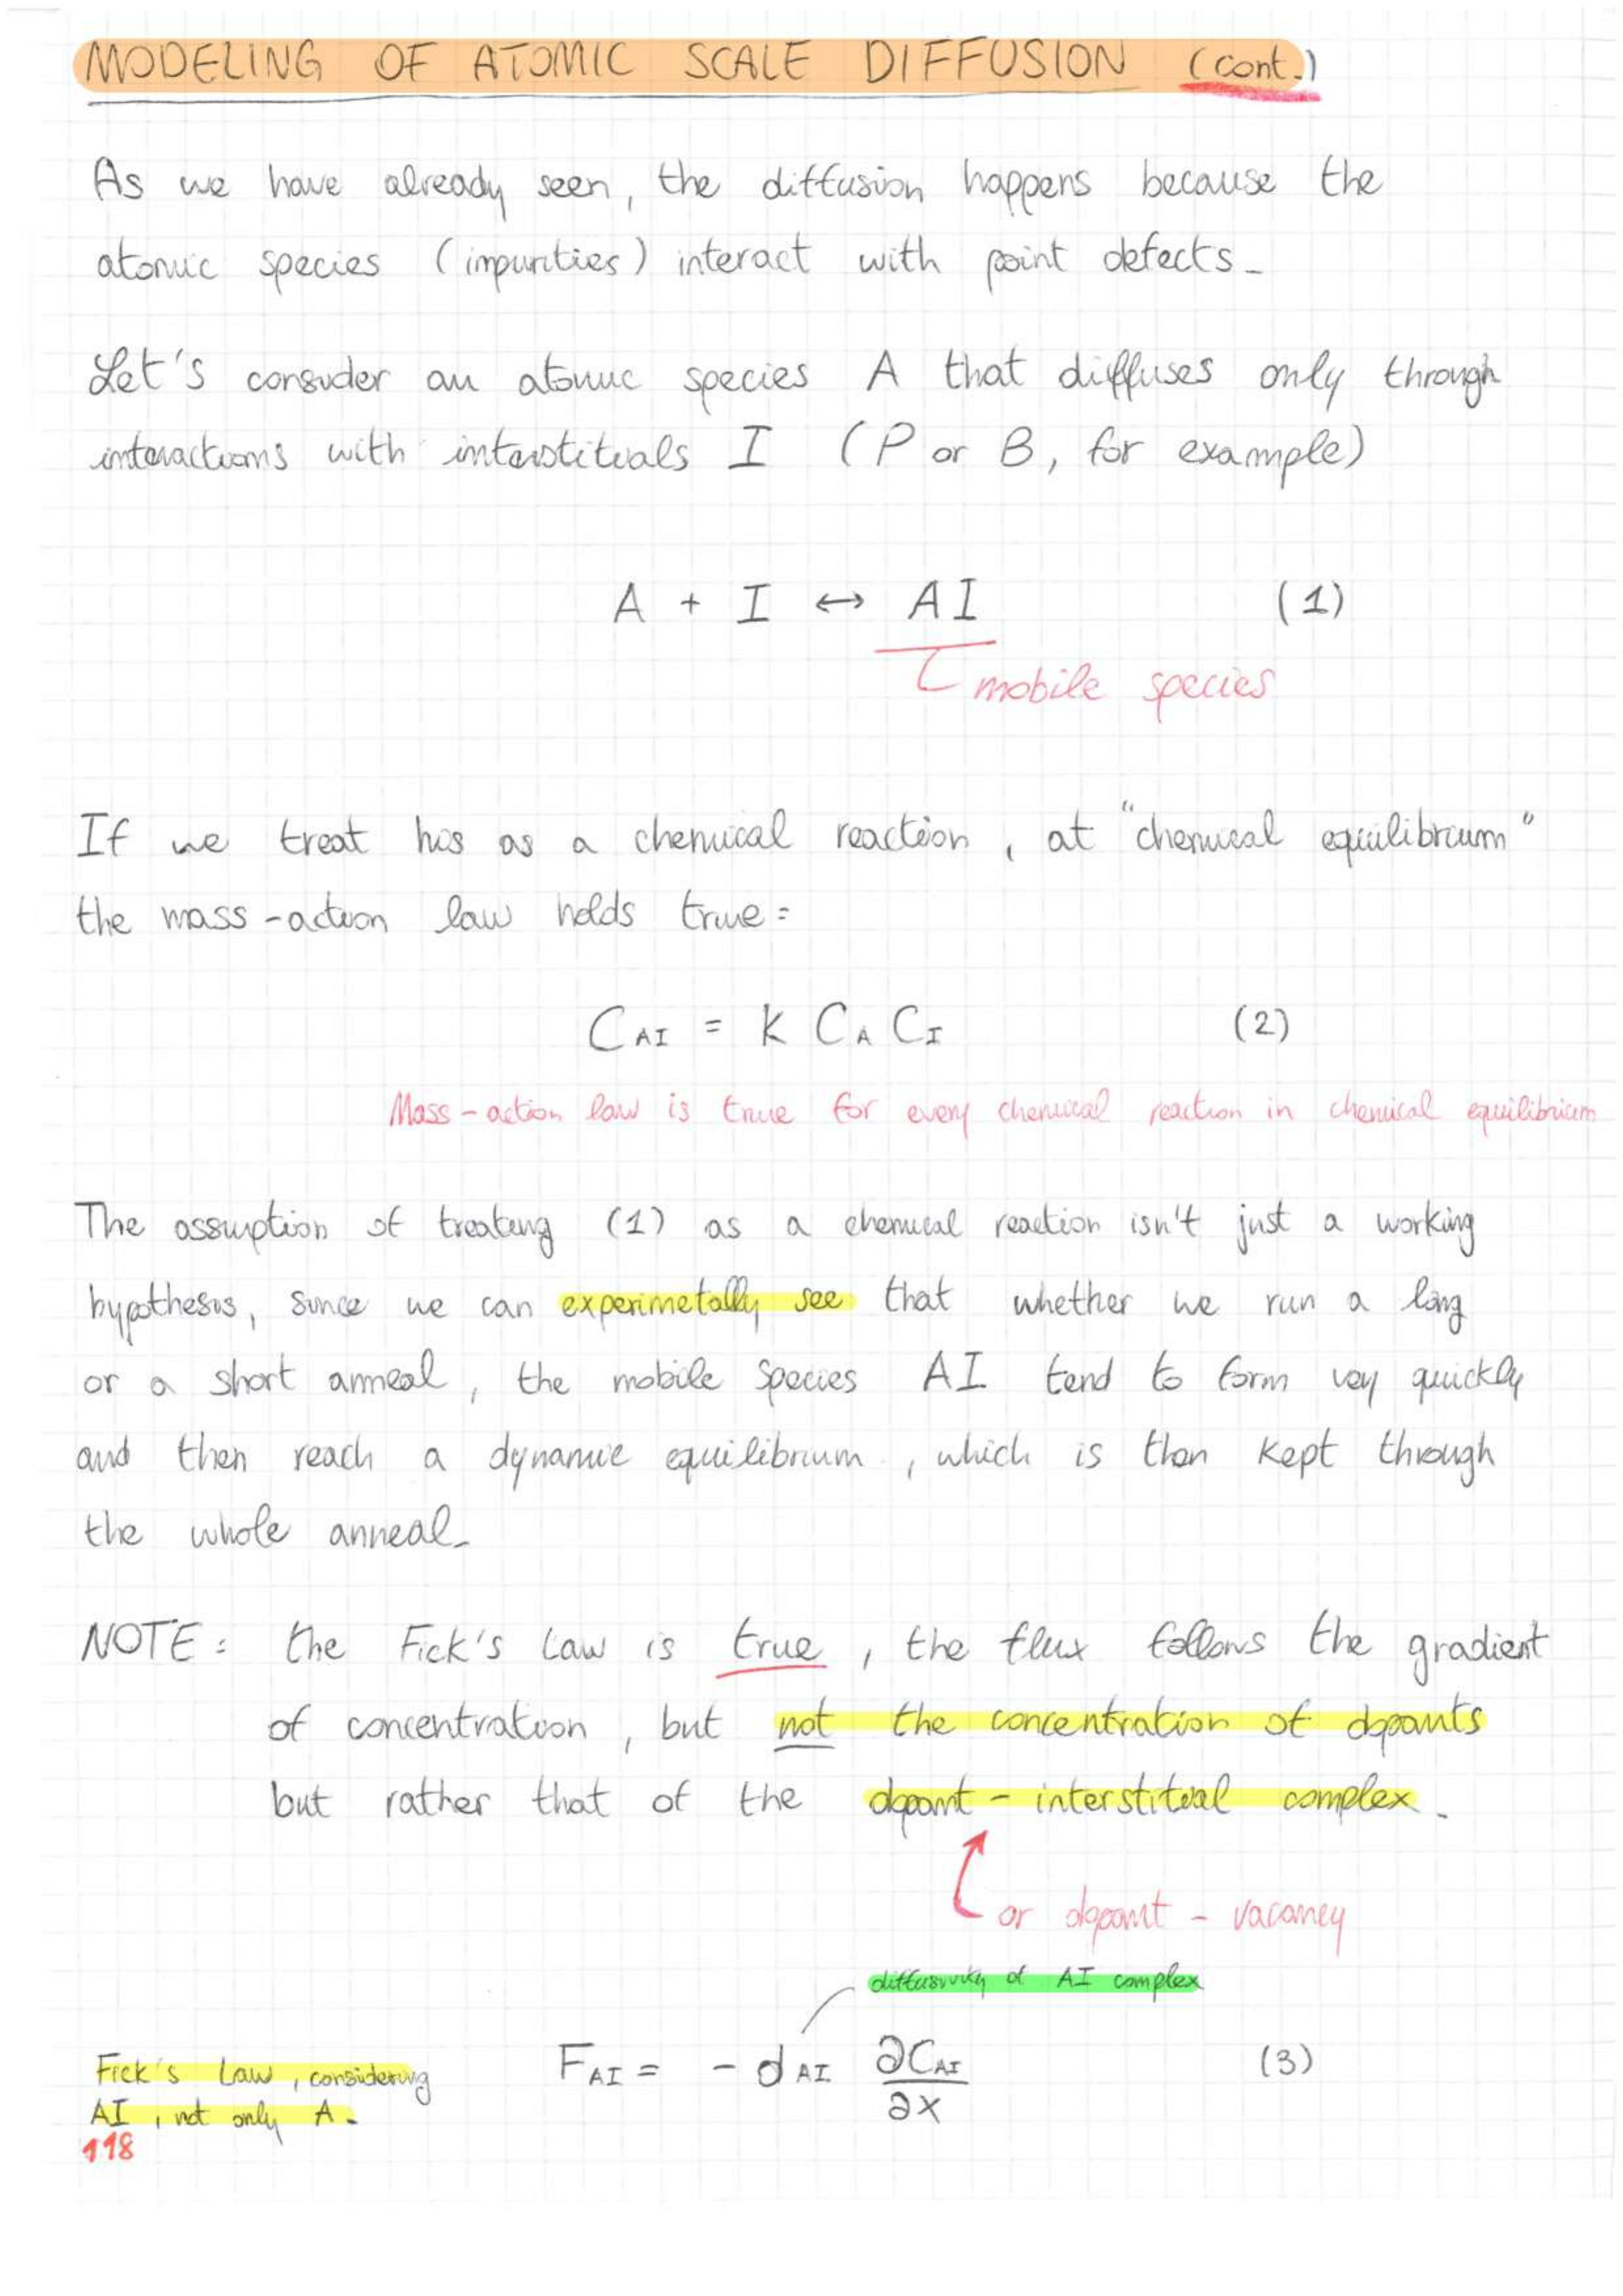 MODELING OF ATOMIC SCALE DIFFUSION (cont.)
As we have already seen, the diffusion happens because the
atomic species (impurities) interact with point defects.
Let's consider an atomic species A that diffuses only through
interactions with interstitials I (P or B, for example)
A + I ↔ AI (1)
mobile species
If we treat his as a chemical reaction, at "chemical equilibrium"
the mass-action law holds true:
C_AI = K C_A C_I (2)
Mass-action law is true for every chemical reaction in chemical equilibrium
The assumption of treating (1) as a chemical reaction isn't just a working
hypothesis, since we can experimetally see that whether we run a long
or a short anneal, the mobile species AI tend to form vey quickly
and then reach a dynamic equilibrium, which is then kept through
the whole anneal.
NOTE: the Fick's Law is true, the flux follows the gradient
of concentration, but not the concentration of dopants
but rather that of the dopant - interstitial complex.
or dopant - vacancy
diffusivity of AI complex
F_AI = - d_AI ∂C_AI/∂x (3)
Fick's Law, considering
AI, not only A.
118